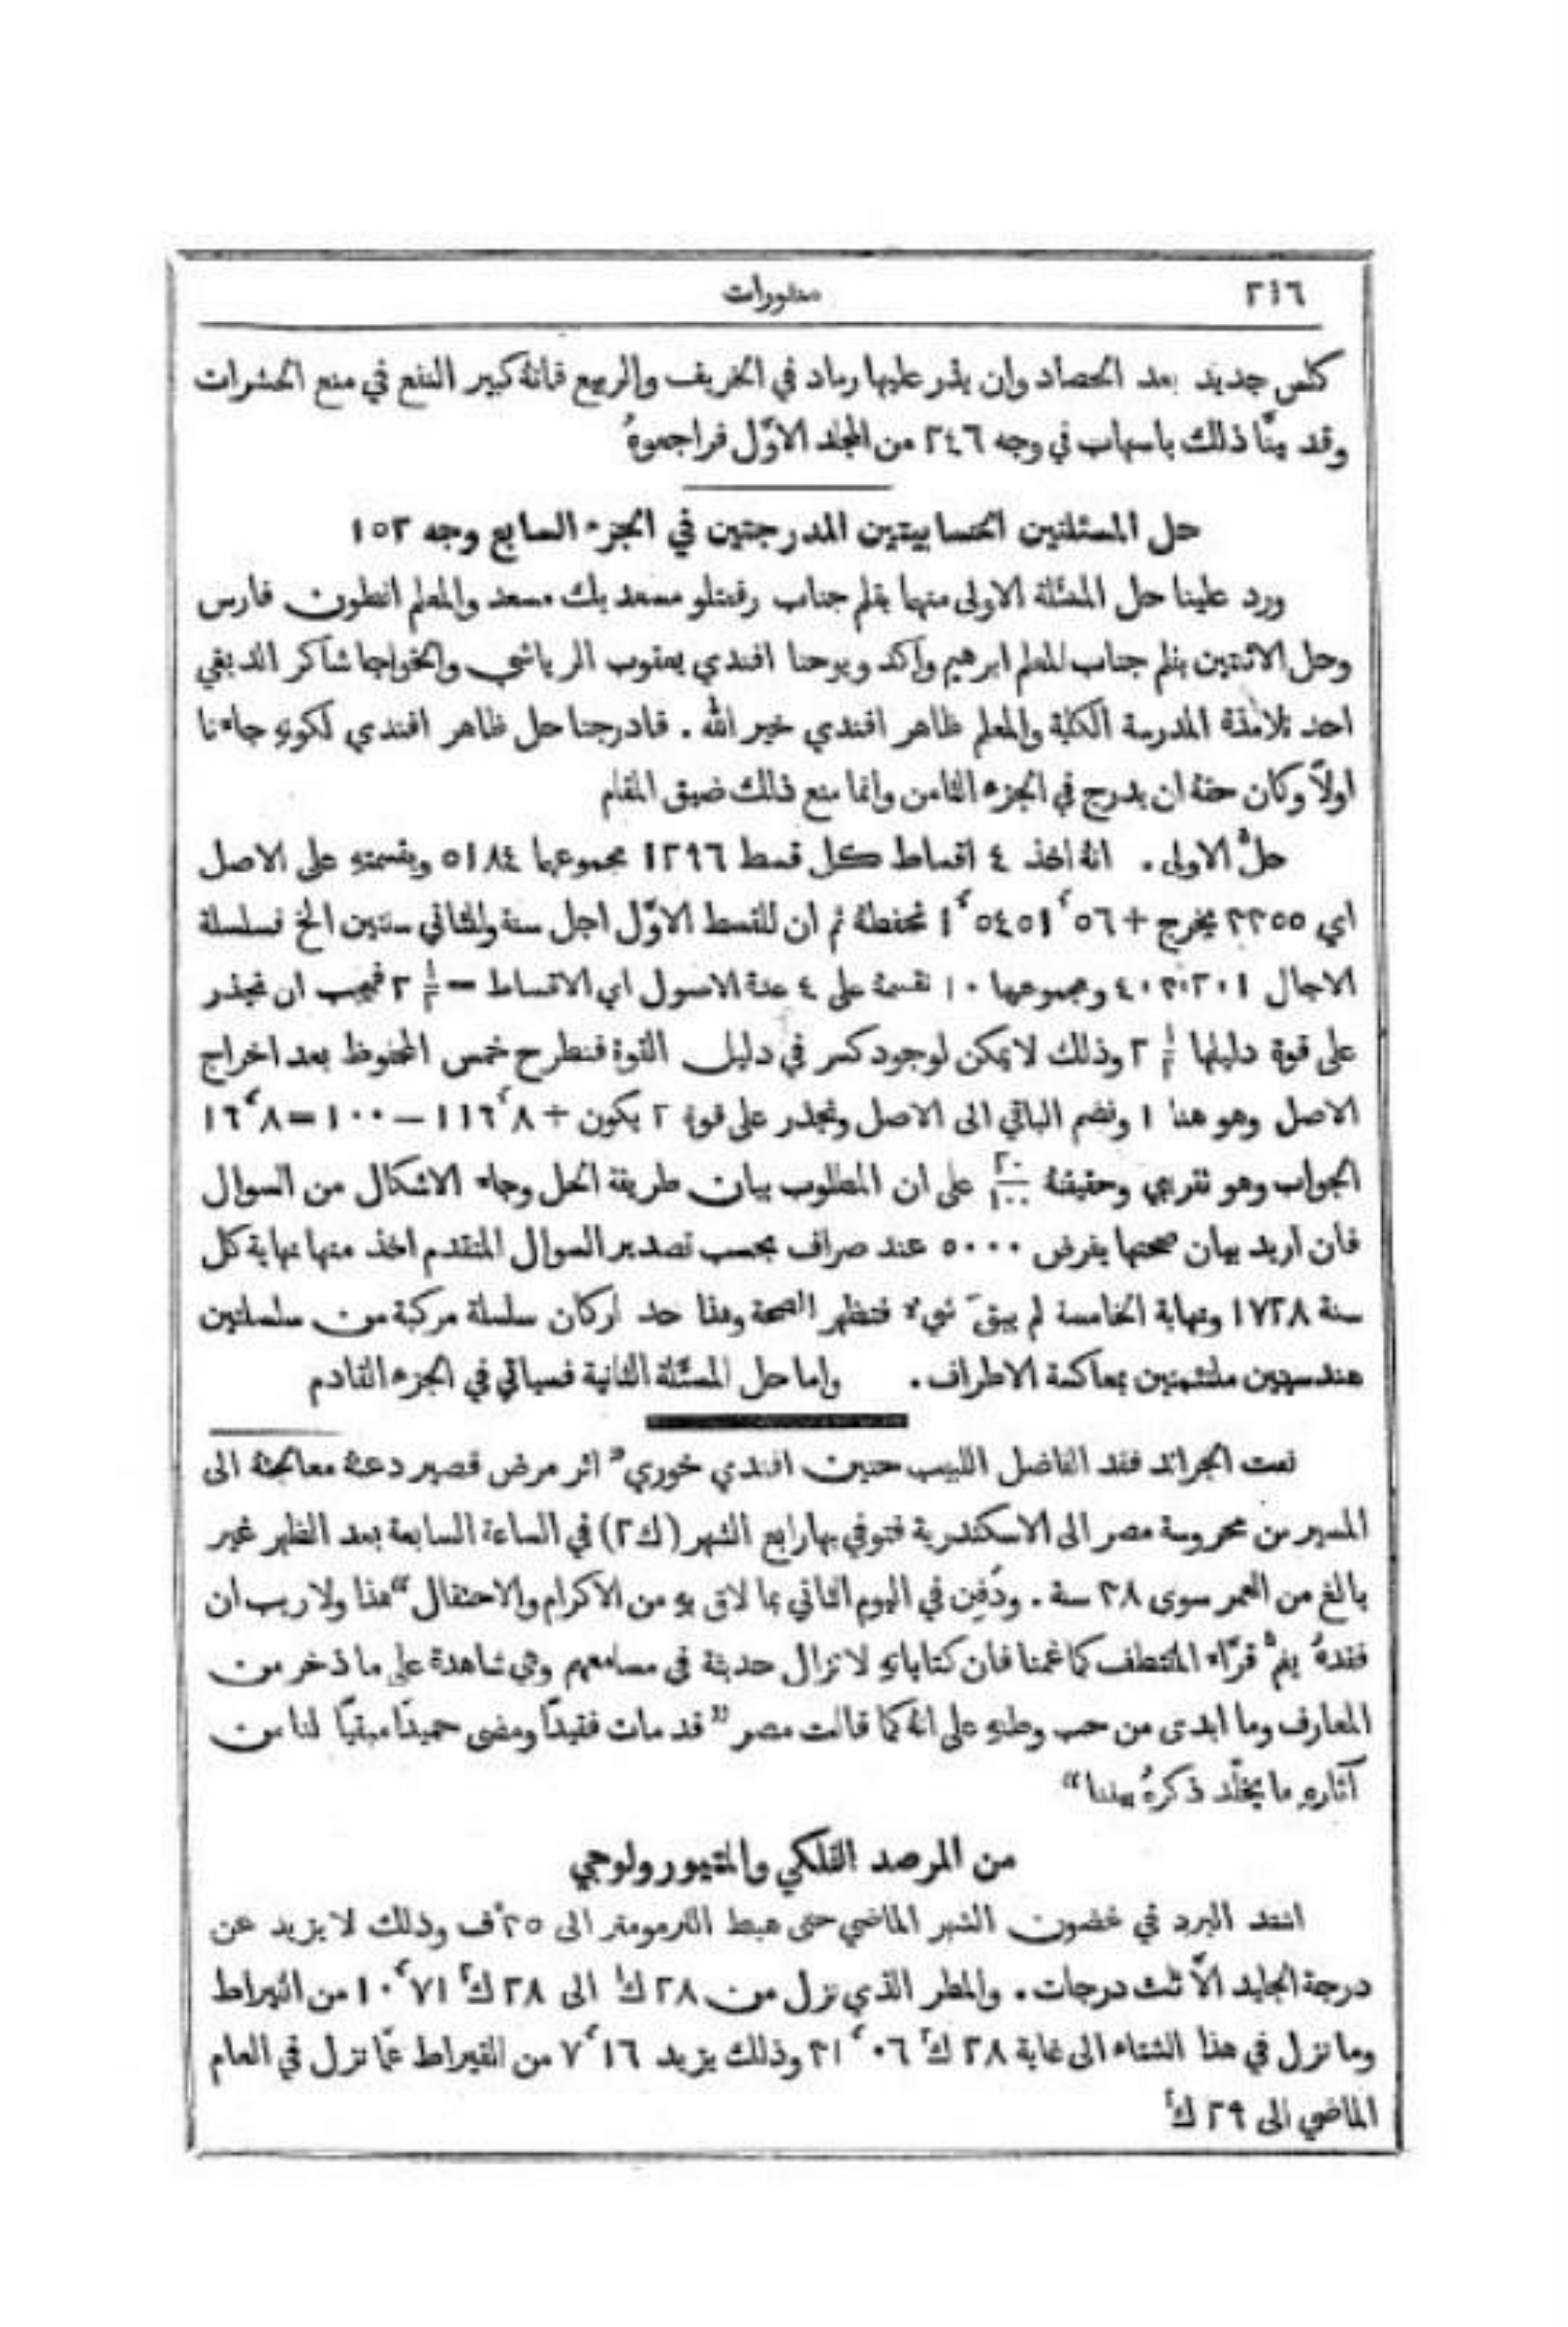 ٢١٦
منثورات
كلس جديد بعد الحصاد وان يذر عليها رماد في الخريف والربيع فانهُ كبير النفع في منع الحشرات
وقد بينّا ذلك باسهاب في وجه ٢٤٦ من المجلد الاوّل فراجعوهُ
حل المسئلتين الحسابيتين المدرجتين في الجزء السابع وجه ١٥٢
ورد علينا حل المسئلة الاولى منهما بقلم جناب رفعتلو مسعد بك مسعد والمعلم انطون فارس
وحل الاثنتين بقلم جناب المعلم ابرهيم واكد ويوحنا افندي يعقوب الرياشي والخواجا شاكر الدبغي
احد تلامذة المدرسة الكلية والمعلم ظاهر افندي خير الله . فادرجنا حل ظاهر افندي لكونهِ جاءنا
اولاً وكان حقهُ ان يدرج في الجزء الثامن وانما منع ذلك ضيق المقام
حلُّ الاولى . انهُ اخذ ٤ اقساط كل قسط ١٢٩٦ مجموعها ٥١٨٤ وبقسمتهِ على الاصل
اي ٣٣٥٥ يخرج + ٥٦ʻ١ʻ٥٤٥١ نحفظهُ ثم ان للقسط الاوّل اجل سنة وللثاني سنتين الخ فسلسلة
الاجال ٤٠٣٠٢٠١ ومجموعها ١٠ نقسمهُ على ٤ عدة الاصول اي الاقساط = ½ ٢ فيجب ان نجذر
على قوة دليلها ½ ٢ وذلك لا يمكن لوجود كسر في دليل القوة فنطرح خمس المحفوظ بعد اخراج
الاصل وهو هنا ١ ونضم الباقي الى الاصل ونجذر على قوة ٢ يكون + ٨ʻ١١٦ – ١٠٠ = ٨ʻ١٦
الجواب وهو تقريبي وحقيقتهُ ٢٠/١٠٠ على ان المطلوب بيان طريقة الحل وجاء الاشكال من السوال
فان اريد بيان صحتها بفرض ٥٠٠٠ عند صراف بحسب تصدير السوال المتقدم اخذ منها نهاية كل
سنة ١٧٢٨ ونهاية الخامسة لم يبقَ شيء فتظهر الصحة وهذا حد اركان سلسلة مركبة من سلسلتين
هندسيتين ملتئمتين بمعاكسة الاطراف . واما حل المسئلة الثانية فسياتي في الجزء القادم
نعت الجرائد فقد الفاضل اللبيب حنين افندي خوري ”اثر مرض قصير دعت معالجتهُ الى
المسير من محروسة مصر الى الاسكندرية فتوفي بها رابع الشهر (ك٢) في الساعة السابعة بعد الظهر غير
بالغ من العمر سوى ٢٨ سنة . ودُفِن في اليوم الثاني بما لاق بهِ من الاكرام والاحتفال“ هذا ولا ريب ان
فقدهُ يغمُّ قرّاء المقتطف كما غمنا فان كتاباتهِ لا تزال حديثة في مسامعهم وهي شاهدة على ما ذخر من
المعارف وما ابدى من حب وطنهِ على انهُ كما قالت مصر ”قد مات فقيدًا ومضى حميدًا مبقيًا لنا من
آثارهِ ما يخلّد ذكرهُ بيننا“
من المرصد الفلكي والمتيورولوجي
اشتد البرد في غضون الشهر الماضي حتى هبط الثرمومتر الى ٣٥°ف وذلك لا يزيد عن
درجة الجليد الاّ ثلث درجات . والمطر الذي نزل من ٢٨ ك١ الى ٢٨ ك٢ ٧١ʻ١٠ من القيراط
وما نزل في هذا الشتاء الى غاية ٢٨ ك٢ ٠٦ʻ٢١ وذلك يزيد ١٦ʻ٧ من القيراط عمّا نزل في العام
الماضي الى ٢٩ ك٢